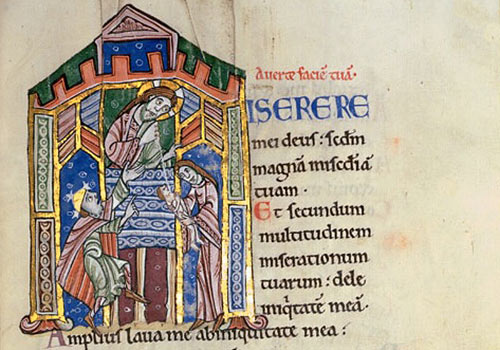 Auerte faciē tuā·
ISERERE
mei deus: scd̄m
magnā misc̄diā
tuam·
Et secundum
multitudinem
miserationum
tuarum: dele
iniq̇tatē meā·
Amplius laua me ab iniquitate mea: